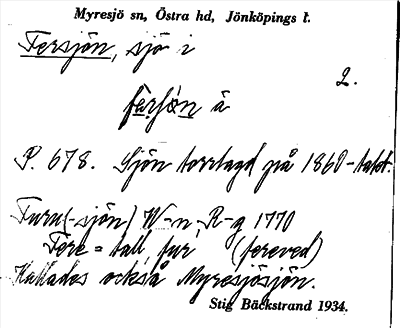 Myresjö sn, Östra hd, Jönköpings l.
Fersjön, sjö i
2.
fę̀rʃọ́n ä
P. 678. Sjön torrlagd på 1860-talet.
Furu(-sjön) W-n, R-g 1770
Fere = tall, fur (fereved)
Kallades också Myresjösjön.
Stig Bäckstrand 1934.